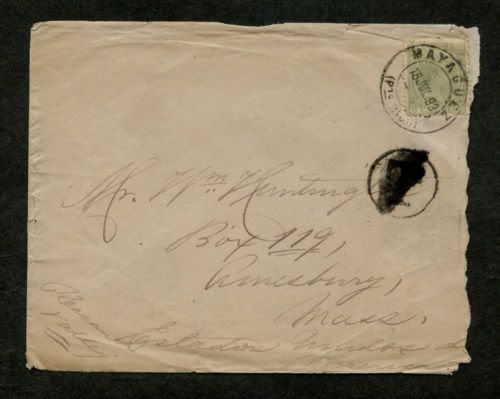 MAYAGUEZ
Mr. Wm Hunting
Box 119,
Amesbury,
Mass,
Estados Unidos d